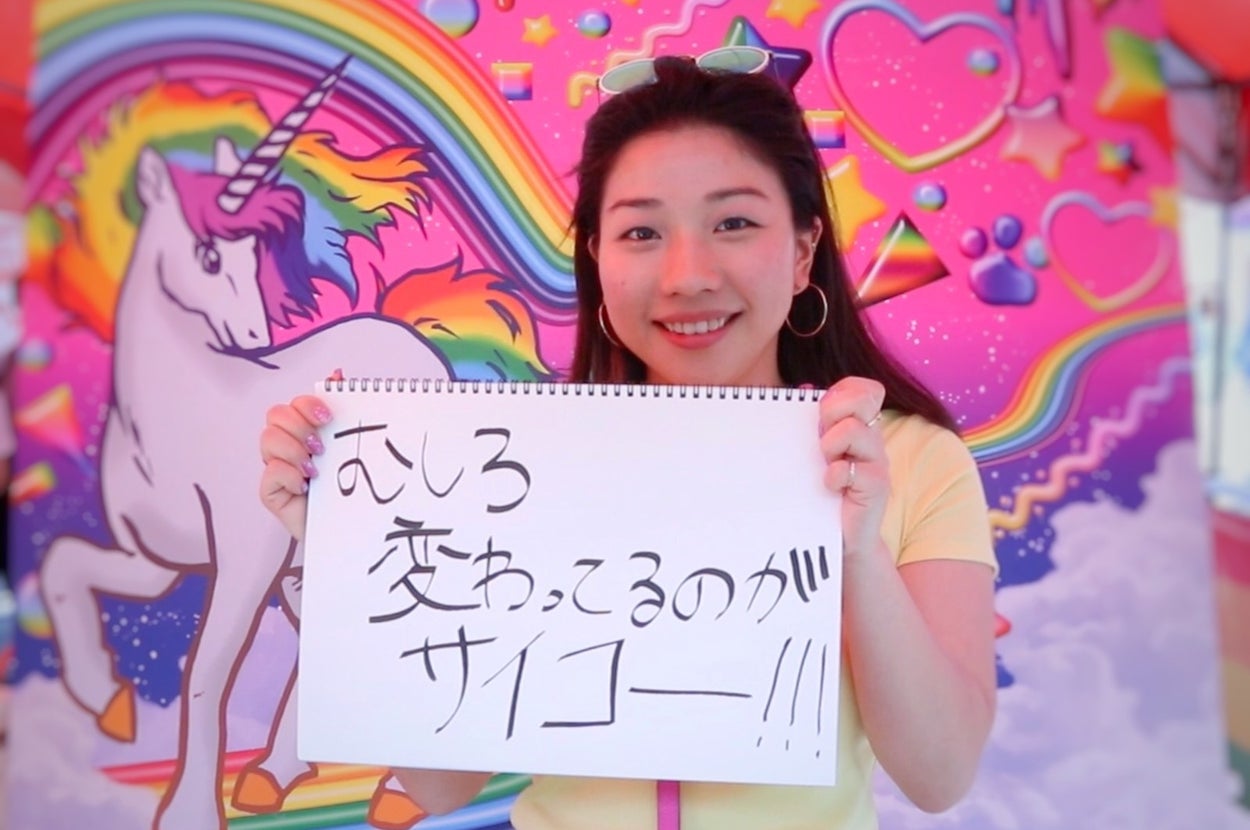 むしろ
変わってるのが
サイコー!!!